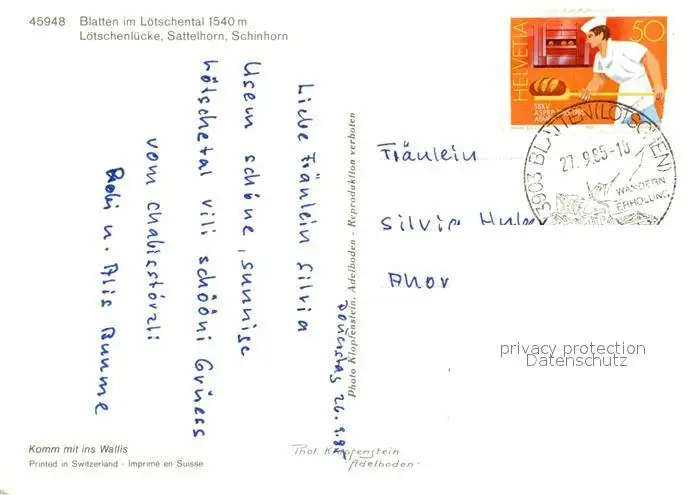 45948 Blatten im Lötschental 1540 m
Lötschenlücke, Sattelhorn, Schinhorn
HELVETIA
50
SBKV
3903 BLATTEN (LÖTSCHEN)
27. 9. 85-18
WANDERN
ERHOLUNG
Donerstag 26. 9. 85
Liebe Fräulein Silvia
Usem schöne, sunnige
Lötschetal vili schööni Grüess
vom Chabisstörzli
Robi u. Alis
Photo Klopfenstein, Adelboden - Reproduktion verboten
Fräulein
Silvia
privacy protection
Datenschutz
Komm mit ins Wallis
Printed in Switzerland - Imprimé en Suisse
Phot. Klopfenstein
Adelboden